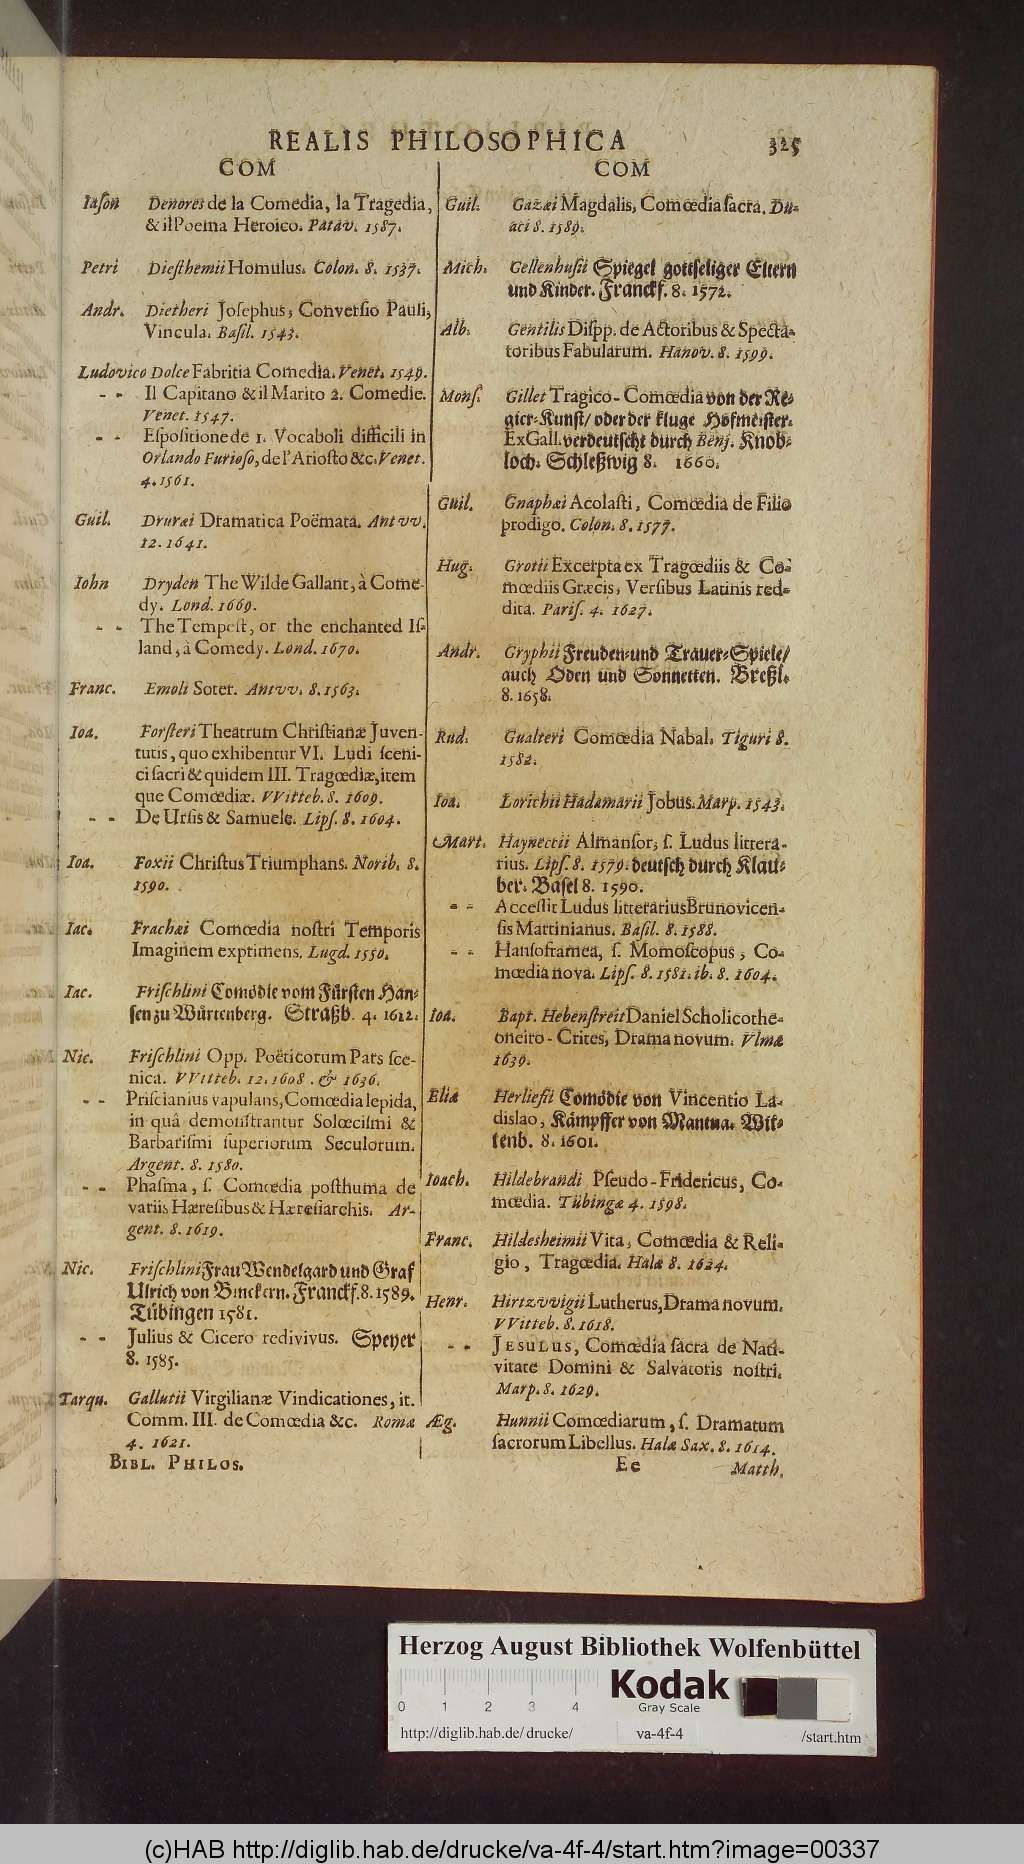 REALIS PHILOSOPHICA 325
COM
Iaſon Denores de la Comedia, la Tragedia,
& il Poema Heroico. Patav. 1587.
Petri Dieſthemii Homulus. Colon. 8. 1537.
Andr. Dietheri Joſephus, Converſio Pauli,
Vincula. Baſil. 1543.
Ludovico Dolce Fabritia Comedia. Venet. 1549.
- - Il Capitano & il Marito 2. Comedie.
Venet. 1547.
- - Eſpoſitione de 1. Vocaboli difficili in
Orlando Furioſo, de l'Arioſto &c. Venet.
4. 1561.
Guil. Druræi Dramatica Poëmata. Antvv.
12. 1641.
Iohn Dryden The Wilde Gallant, à Come-
dy. Lond. 1669.
- - The Tempeſt, or the enchanted Iſ-
land, à Comedy. Lond. 1670.
Franc. Emoli Soter. Antvv. 8. 1563.
Ioa. Forſteri Theatrum Chriſtianæ Juven-
tutis, quo exhibentur VI. Ludi ſceni-
ci ſacri & quidem III. Tragœdiæ, item
que Comœdiæ. VVitteb. 8. 1609.
- - De Urſis & Samuele. Lipſ. 8. 1604.
Ioa. Foxii Chriſtus Triumphans. Norib. 8.
1590.
Iac. Frachæi Comœdia noſtri Temporis
Imaginem exprimens. Lugd. 1550.
Iac. Friſchlini Comödie vom Fürſten Han-
ſen zu Würtenberg. Straßb. 4. 1612.
Nic. Friſchlini Opp. Poëticorum Pars ſce-
nica. VVitteb. 12. 1608. & 1636.
- - Priſcianius vapulans, Comœdia lepida,
in quâ demonſtrantur Solœciſmi &
Barbariſmi ſuperiorum Seculorum.
Argent. 8. 1580.
- - Phaſma, ſ. Comœdia poſthuma de
variis Hæreſibus & Hæreſiarchis. Ar-
gent. 8. 1619.
Nic. Friſchlini Frau Wendelgard und Graf
Ulrich von Buckern. Franckf. 8. 1589.
Tübingen 1581.
- - Julius & Cicero redivivus. Speyer
8. 1585.
Tarqu. Gallutii Virgilianæ Vindicationes, it.
Comm. III. de Comœdia &c. Romæ
4. 1621.
BIBL. PHILOS.
COM
Guil. Gazæi Magdalis, Comœdia ſacra. Du-
aci 8. 1589.
Mich. Gellenhuſii Spiegel gottſeliger Eltern
und Kinder. Franckf. 8. 1572.
Alb. Gentilis Diſpp. de Actoribus & Specta-
toribus Fabularum. Hanov. 8. 1599.
Monſ. Gillet Tragico-Comœdia von der Re-
gier-Kunſt/ oder der kluge Hofmeiſter.
Ex Gall. verdeutſcht durch Benj. Knob-
loch. Schleßwig 8. 1660.
Guil. Gnaphæi Acolaſti, Comœdia de Filio
prodigo. Colon. 8. 1577.
Hug. Grotii Excerpta ex Tragœdiis & Co-
mœdiis Græcis, Verſibus Latinis red-
dita. Pariſ. 4. 1627.
Andr. Gryphii Freuden-und Trauer-Spiele/
auch Oden und Sonnetten. Breßl.
8. 1658.
Rud. Gualteri Comœdia Nabal. Tiguri 8.
1582.
Ioa. Lorichii Hadamarii Jobus. Marp. 1543.
Mart. Hayneccii Almanſor, ſ. Ludus littera-
rius. Lipſ. 8. 1579. deutſch durch Klau-
ber. Baſel 8. 1590.
- - Acceſſit Ludus litterarius Brunovicen-
ſis Martinianus. Baſil. 8. 1588.
- - Hanſoframea, ſ. Momoſcopus, Co-
mœdia nova. Lipſ. 8. 1581. ib. 8. 1604.
Ioa. Bapt. Hebenſtreit Daniel Scholicothe-
oneiro-Crites, Drama novum. Vlmæ
1639.
Eliæ Herlieſii Comödie von Vincentio La-
dislao, Kämpffer von Mantua. Wit-
tenb. 8. 1601.
Ioach. Hildebrandi Pſeudo-Fridericus, Co-
mœdia. Tübingæ 4. 1598.
Franc. Hildesheimii Vita, Comœdia & Reli-
gio, Tragœdia. Halæ 8. 1624.
Henr. Hirtzvvigii Lutherus, Drama novum.
VVitteb. 8. 1618.
- - JESULUS, Comœdia ſacra de Nati-
vitate Domini & Salvatoris noſtri.
Marp. 8. 1629.
Æg. Hunnii Comœdiarum, ſ. Dramatum
ſacrorum Libellus. Halæ Sax. 8. 1614.
Ee Matth.
Herzog August Bibliothek Wolfenbüttel
0 1 2 3 4
Kodak
Gray Scale
http://diglib.hab.de/drucke/ va-4f-4 /start.htm
(c)HAB http://diglib.hab.de/drucke/va-4f-4/start.htm?image=00337